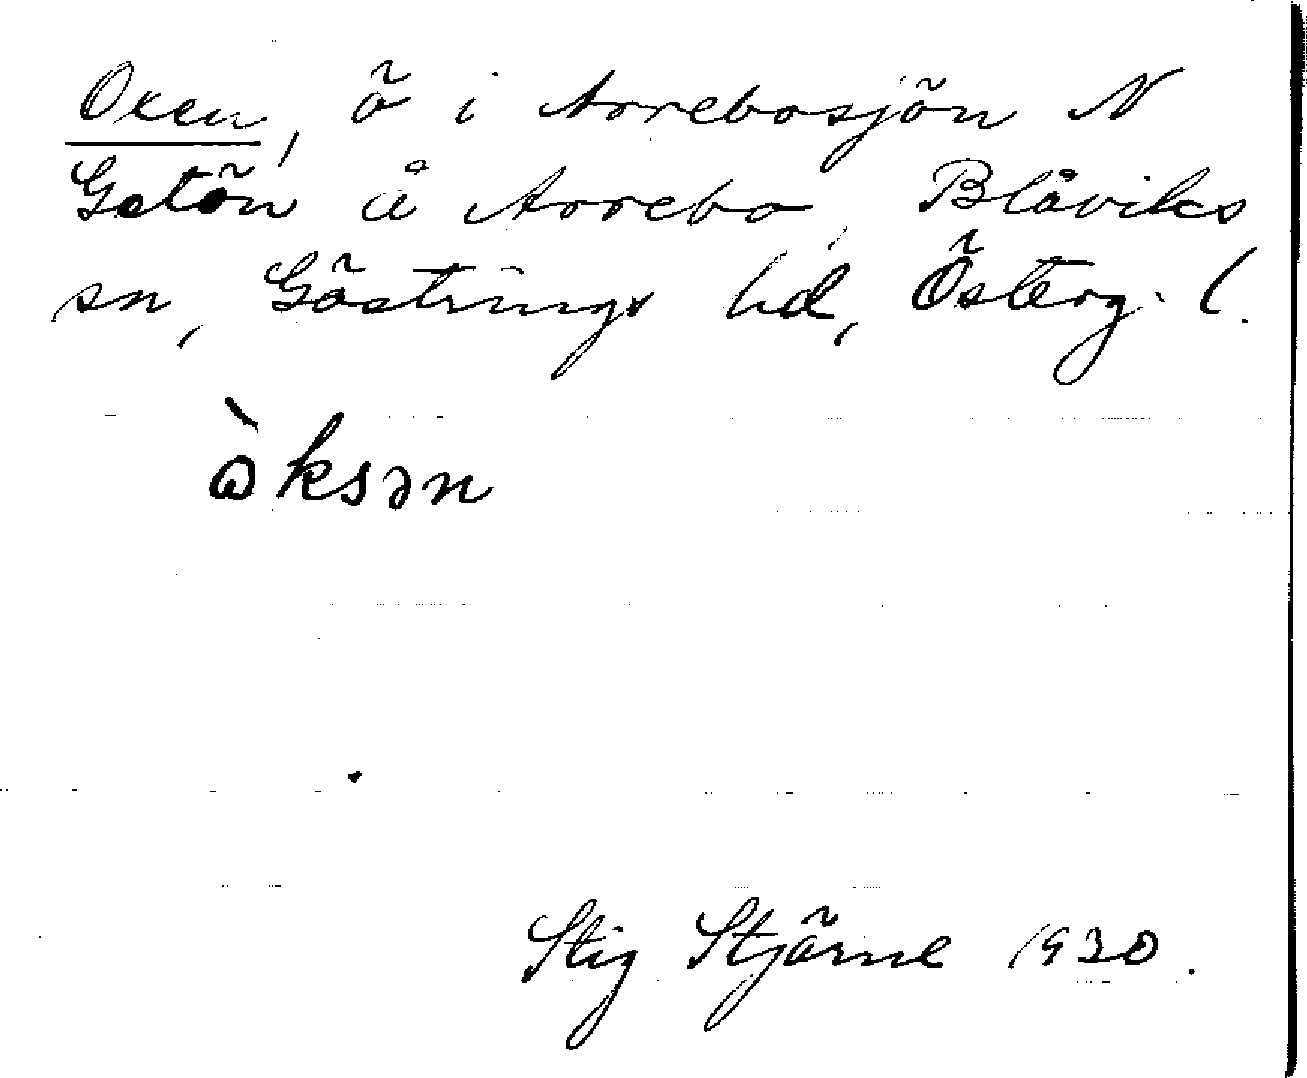 Oxen, ö i Arrebosjön N
Getön å Arrebo, Blåviks
sn, Göstrings hd, Österg. l.
ὼksən
Stig Stjärne 1930.